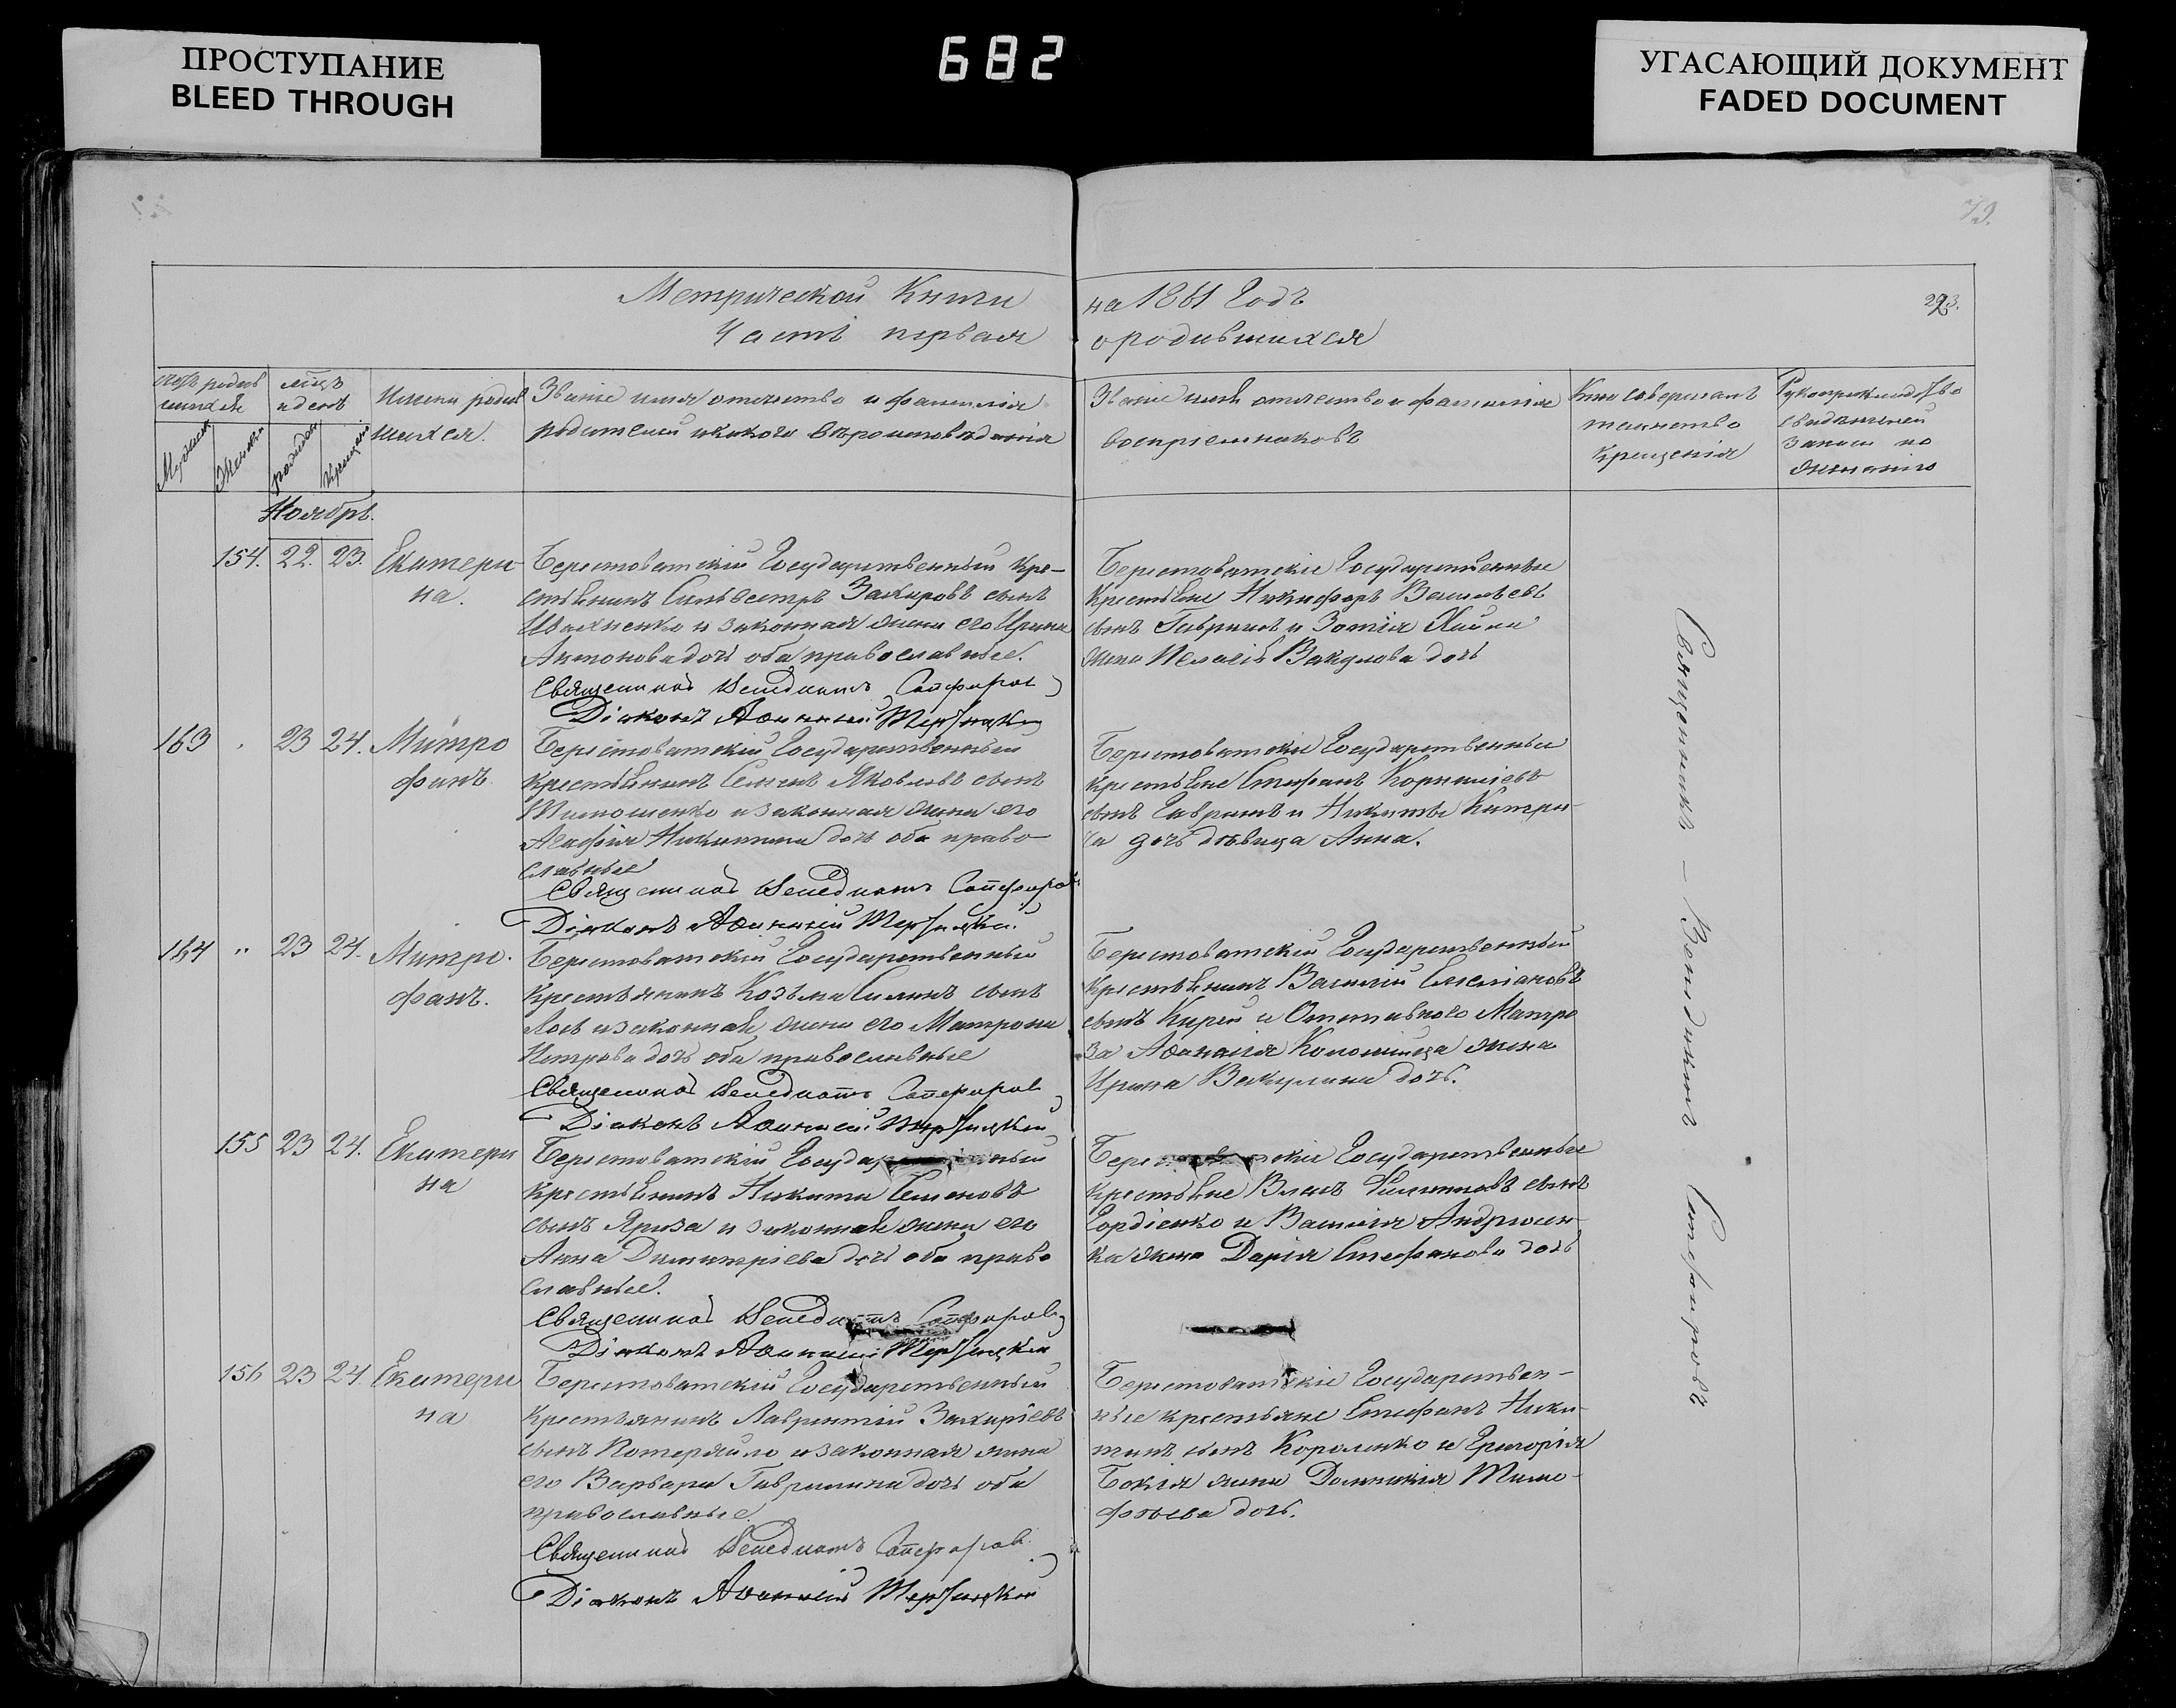 ПРОСТУПАНИЕ
BLEED THROUGH
682
УГАСАЮЩИЙ ДОКУМЕНТ
FADED DOCUMENT
79.
Метрической Книги на 1861 Годъ
293.
Часть первая о родившихся
Имена родив
шихся.
Званіе имя отчество и фамилія
родителей и какого вѣроисповѣданія
Званіе имя отчество и фамилія
воспріемниковъ
Кто совершалъ
таинство
крещенія
Рукоприкладство
свидѣтелей
записи по
желанію
Мужеска
Женска
рожденія
Крещенія
Ноябрь.
154. 22. 23. Екатери
на.
Берестоватскій Государственный кре-
стьянинъ Сильвестръ Захаровъ сынъ
Ивахненко и законная жена его Ирина
Антонова дочь оба православные.
Священникъ Венедиктъ Сапфировъ
Діаконъ Аѳанасій
Берестоватскіе Государственные
крестьяне Никифоръ Васильевъ
сынъ Гавришъ и
жена Вакулова дочь
163 23 24. Митро
фанъ.
Берестоватскій Государственный
крестьянинъ Семенъ Яковлевъ сынъ
Тимошенко и законная жена его
Агафія Никитина дочь оба право
славные
Священникъ Венедиктъ Сапфировъ
Діаконъ Аѳанасій
Берестоватскіе Государственные
крестьяне Стефанъ Корниліевъ
сынъ Гавришъ и Никиты
дочь дѣвица Анна.
164 " 23 24. Митро.
фанъ.
Берестоватскій Государственный
крестьянинъ Козьма Силинъ сынъ
и законная жена его Матрона
Петрова дочь оба православные
Священникъ Венедиктъ Сапфировъ
Діаконъ Аѳанасій
Берестоватскій Государственный
крестьянинъ Василій Емеліановъ
сынъ Кирей и Отставного Матро
за Аѳанасія Коломійца жена
Ирина Вакулина дочь.
155 23 24. Екатери
на
Берестоватскій
крестьянинъ Никита Семеновъ
сынъ и законная жена его
Анна Димитріева дочь оба право
славные.
Священникъ Венедиктъ Сапфировъ
Діаконъ Аѳанасій
Государственные
крестьяне Власъ Филиповъ сынъ
Гордіенко и Василія Андрющен
ка жена Дарія Стефанова дочь
156 23 24. Екатери
на
Берестоватскій Государственный
крестьянинъ Лаврентій Захаріевъ
сынъ Потеряйло и законная жена
его Варвара Гавришина дочь оба
православные.
Священникъ Венедиктъ Сапфировъ
Діаконъ Аѳанасій
Берестоватскіе Государствен-
ные крестьяне Стефанъ Ники
тинъ сынъ Короленко и Григорія
Бокія жена Домникія Тимо-
фѣева дочь.
Священникъ — Венедиктъ Сапфировъ